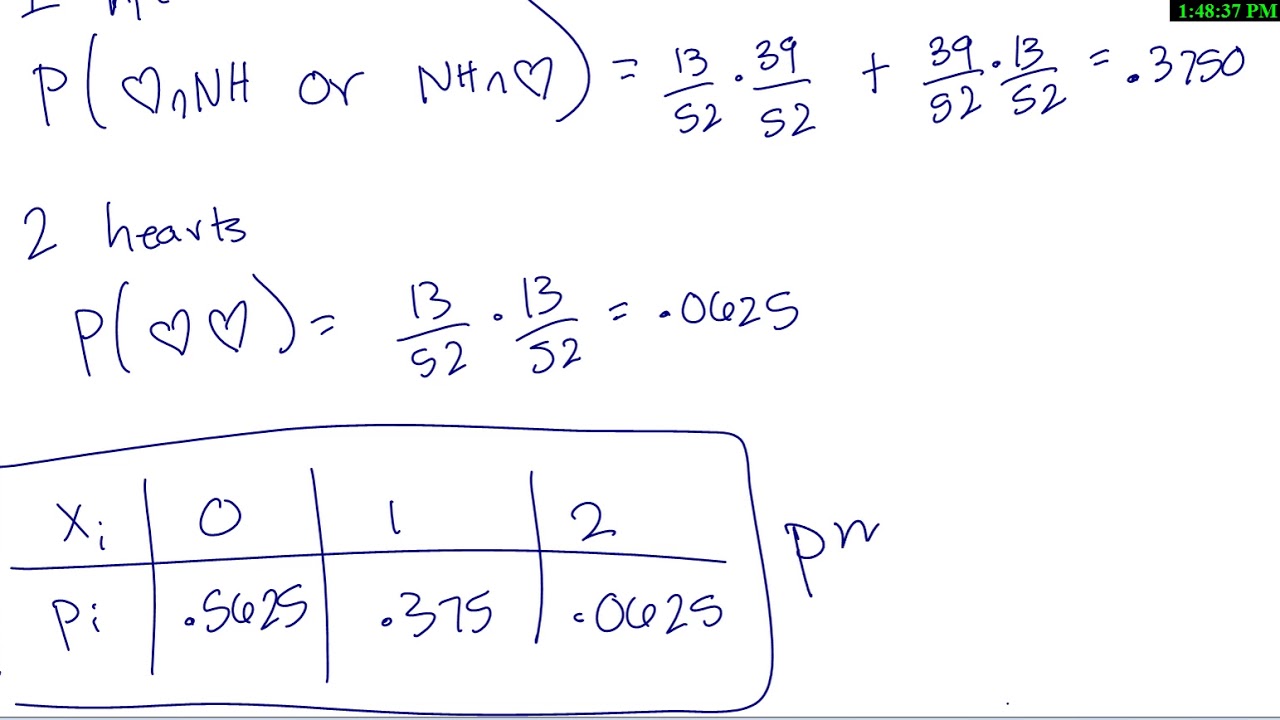 1:48:37 PM
P(♡∩NH or NH∩♡) = 13/52 · 39/52 + 39/52 · 13/52 = .3750
2 hearts
P(♡♡) = 13/52 · 13/52 = .0625
Xi 0 1 2
Pi .5625 .375 .0625